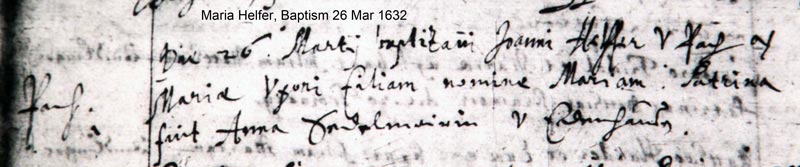 Maria Helfer, Baptism 26 Mar 1632
Die 26. Martij baptizavi Joanni Helffer v Pach et
Pach.
Mariæ Uxori filiam nomine Mariam. Patrina
fuit Anna Sedelmairin v